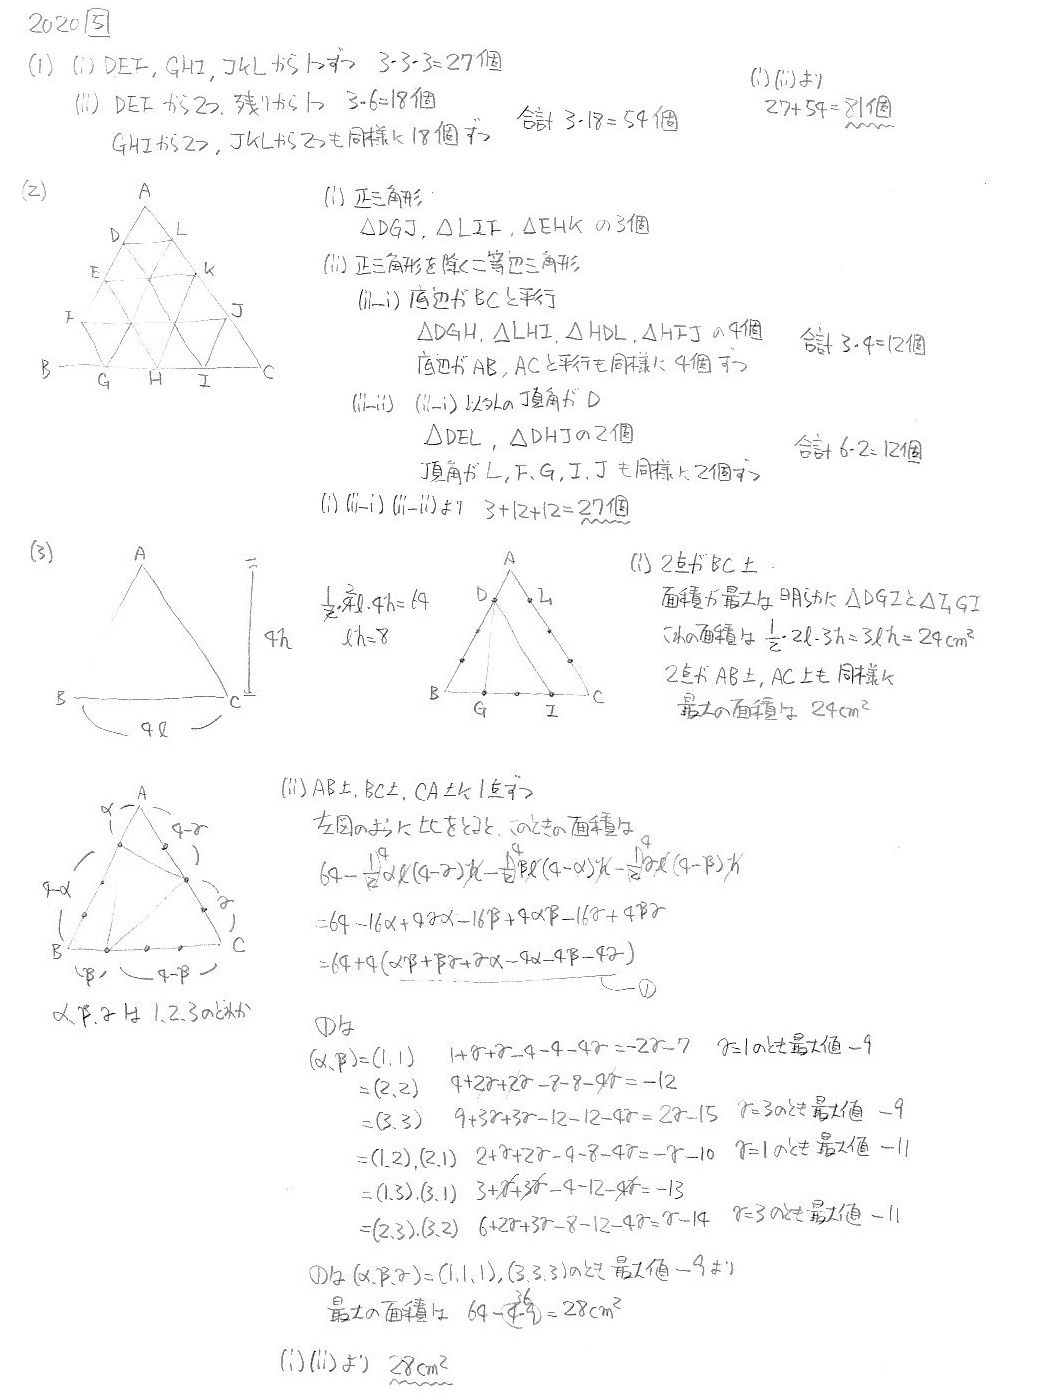 2020 5
(1) (i) DEF, GHI, JKLから1つずつ 3・3・3=27個
(ii) DEFから2つ、残りから1つ 3・6=18個
GHIから2つ, JKLから2つも同様に18個ずつ
合計 3・18=54個
(i)(ii)より
27+54=81個
(2)
A
D L
E K
F J
B G H I C
(i) 正三角形
△DGJ, △LIF, △EHKの3個
(ii) 正三角形を除く二等辺三角形
(ii-i) 底辺がBCと平行
△DGH, △LHI, △HDL, △HFJの4個
底辺がAB, ACと平行も同様に4個ずつ
合計 3・4=12個
(ii-ii) (ii-i)以外の頂角がD
△DEL, △DHJの2個
頂角がL, F, G, I, Jも同様に2個ずつ
合計 6・2=12個
(i)(ii-i)(ii-ii)より 3+12+12=27個
(3)
A
4h
B C
4l
1/2・4l・4h=64
lh=8
A
D L
B C
G I
(i) 2点がBC上
面積が最大は明らかに△DGIと△LGI
これの面積は 1/2・2l・3h=3lh=24cm²
2点がAB上, AC上も同様に
最大の面積は 24cm²
A
α 4-γ
4-α γ
B C
β 4-β
α, β, γは 1, 2, 3のどれか
(ii) AB上, BC上, CA上に1点ずつ
左図のように比をとると、このときの面積は
64-1/2αl(4-γ)h-1/2βl(4-α)h-1/2γl(4-β)h
4 4 4
=64-16α+4γα-16β+4αβ-16γ+4βγ
=64+4(αβ+βγ+γα-4α-4β-4γ)
①
①は
(α, β)=(1, 1) 1+γ+γ-4-4-4γ=-2γ-7 γ=1のとき最大値 -9
=(2, 2) 4+2γ+2γ-8-8-4γ=-12
=(3, 3) 9+3γ+3γ-12-12-4γ=2γ-15 γ=3のとき最大値 -9
=(1, 2), (2, 1) 2+γ+2γ-4-8-4γ=-γ-10 γ=1のとき最大値 -11
=(1, 3), (3, 1) 3+γ+3γ-4-12-4γ=-13
=(2, 3), (3, 2) 6+2γ+3γ-8-12-4γ=γ-14 γ=3のとき最大値 -11
①は(α, β, γ)=(1, 1, 1), (3, 3, 3)のとき最大値 -9より
最大の面積は 64-4・9=28cm²
36
(i)(ii)より 28cm²